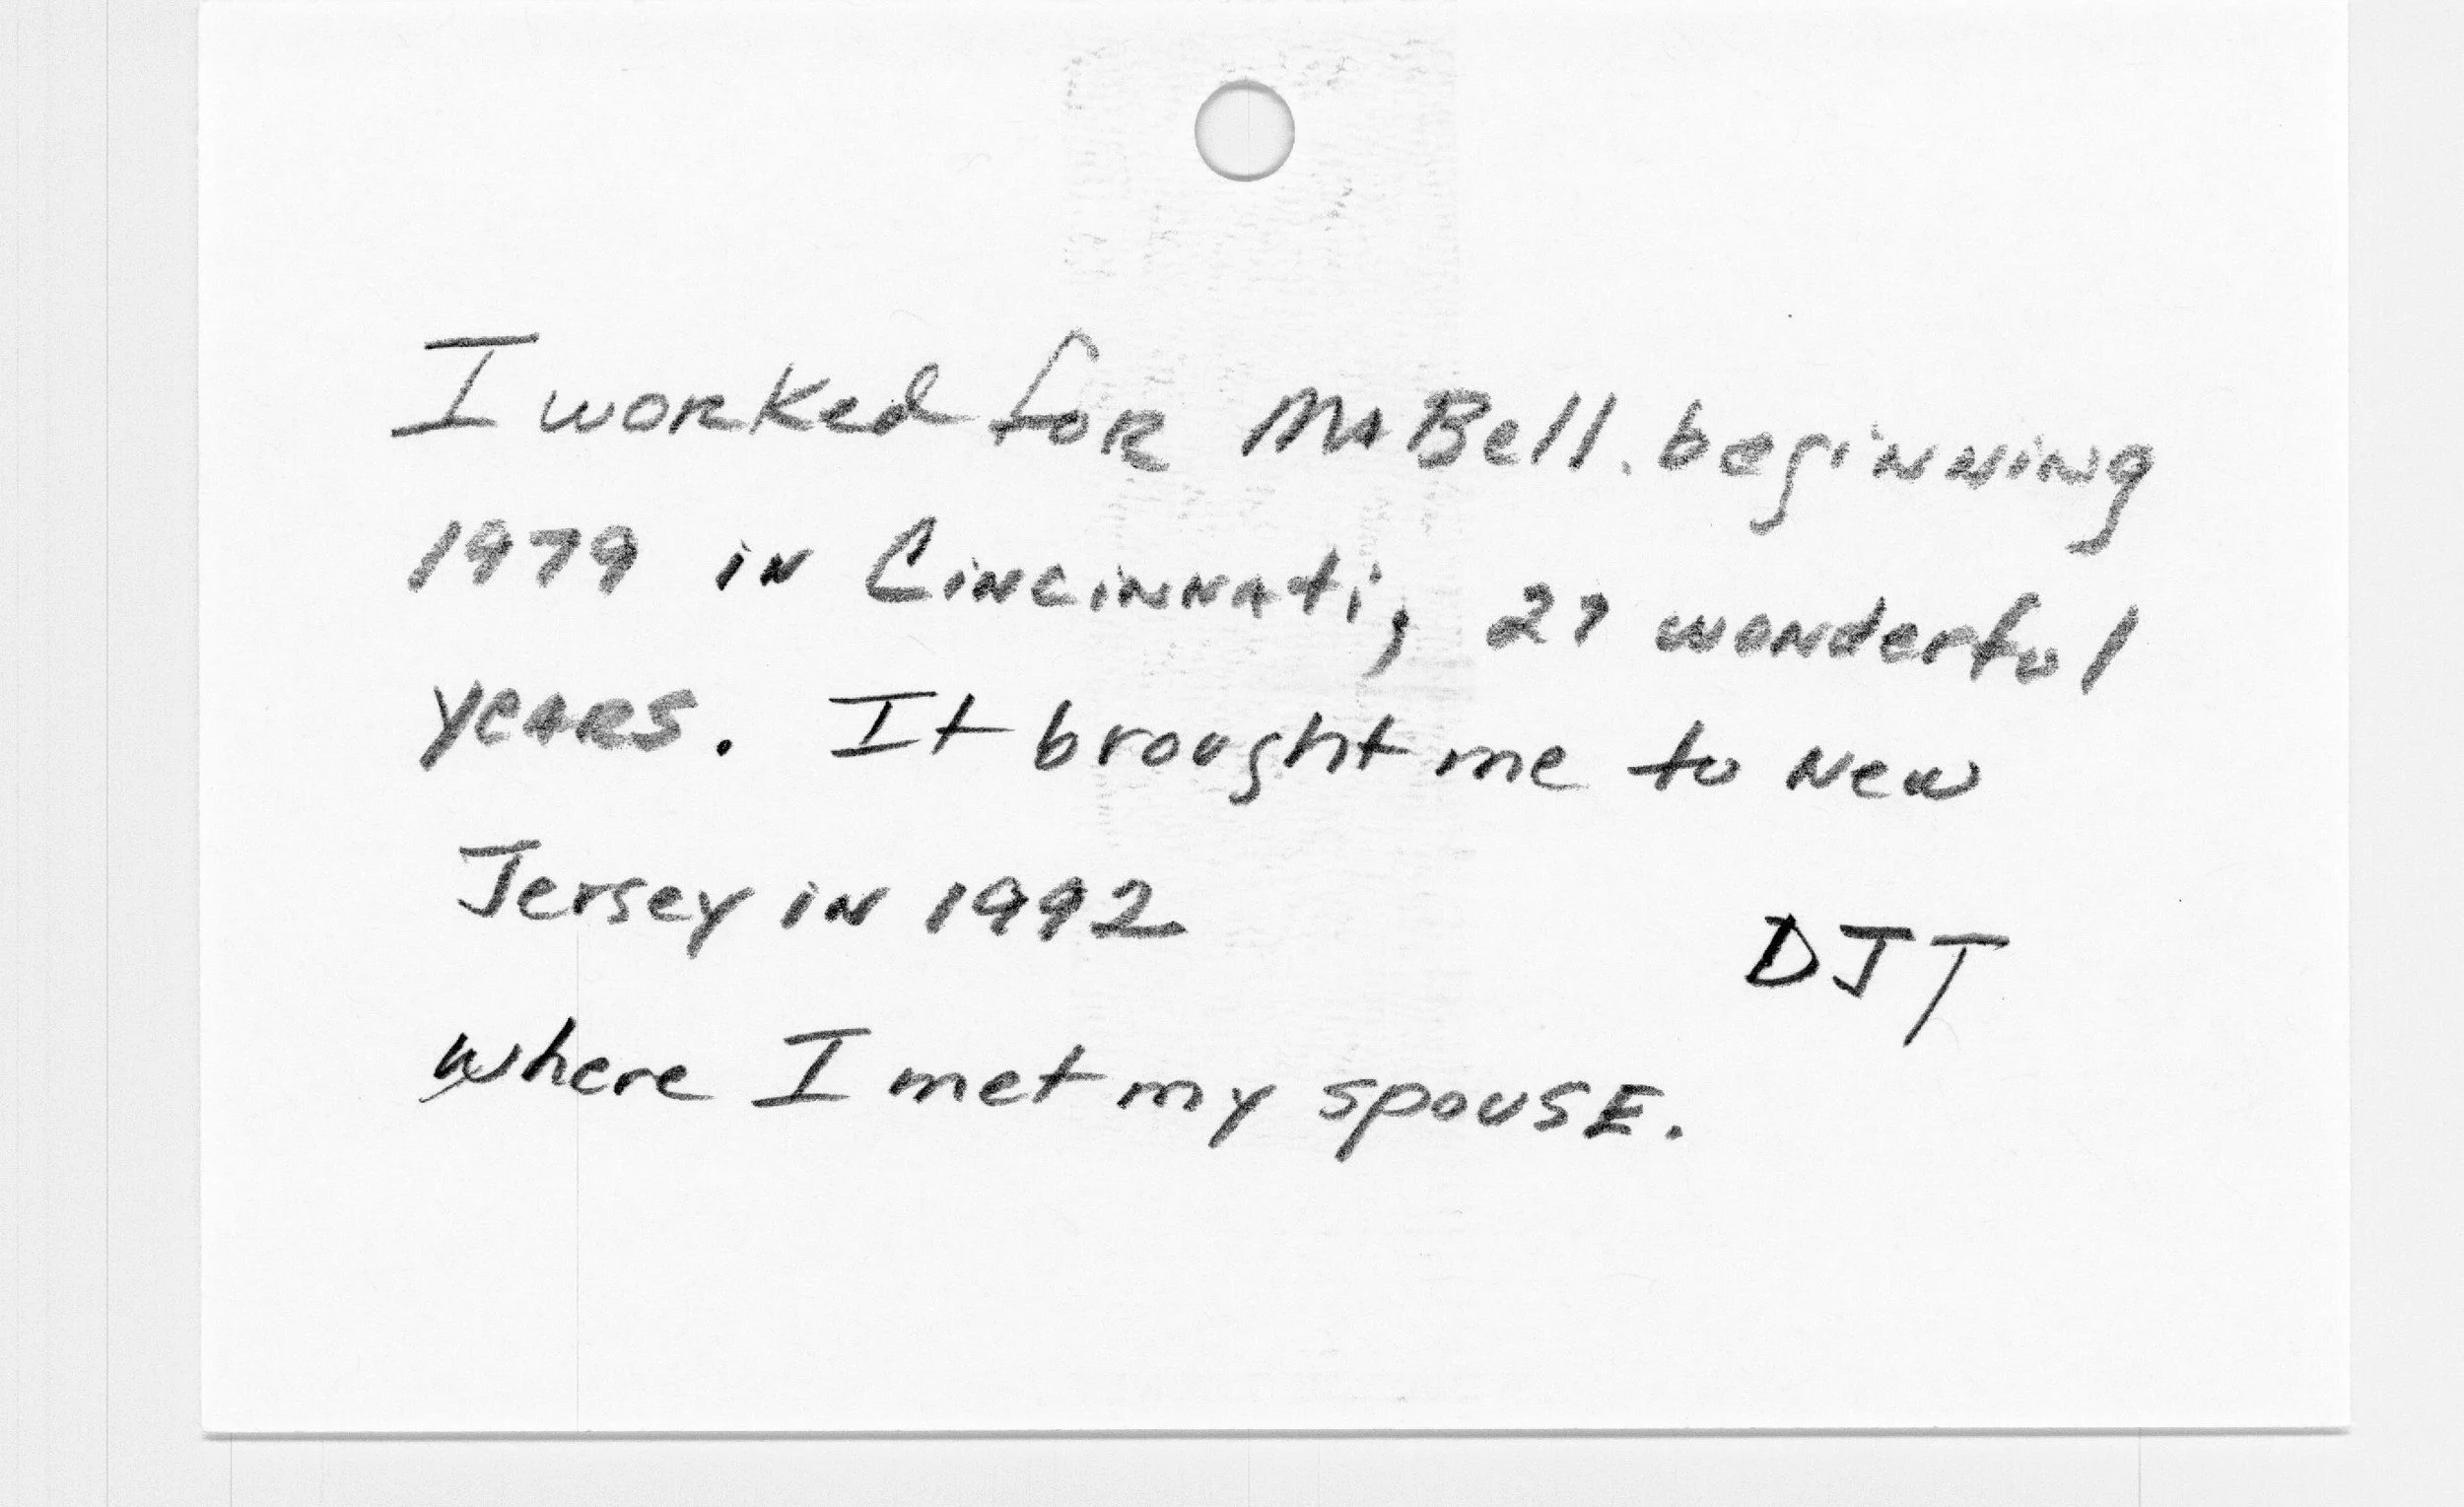 I worked for Ma Bell. beginning
1979 in Cincinnati, 27 wonderful
years. It brought me to New
Jersey in 1992
DJT
where I met my spouse.